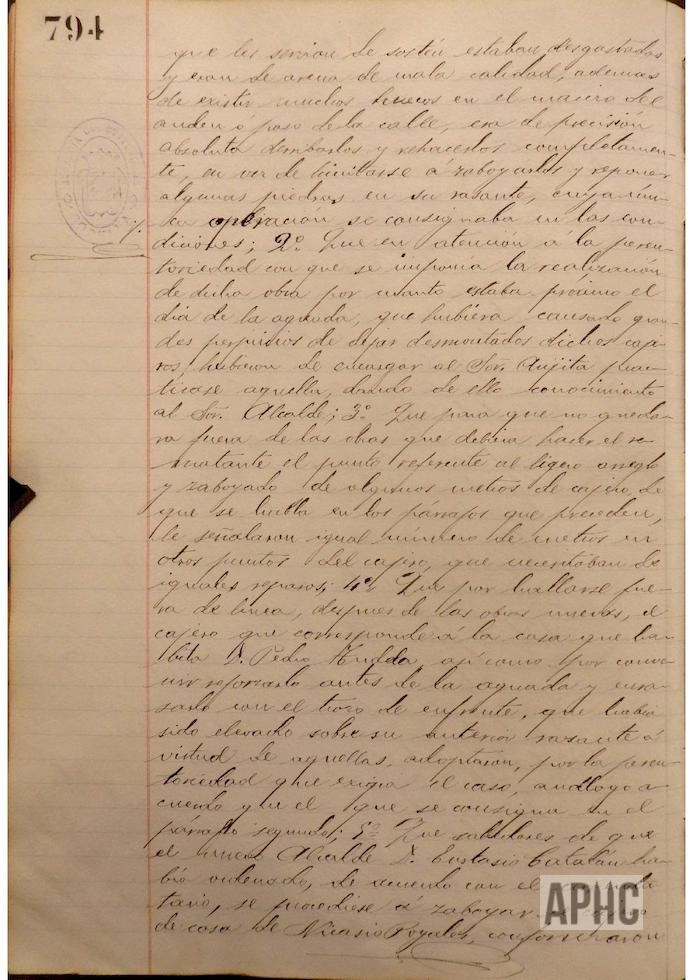 794
que les servian de sostén estaban desgastados
y eran de arena de mala calidad, ademas
de existir muchos huecos en el macizo del
anden ó paso de la calle, era de precisión
absoluta derribarlos y rehacerlos completamen-
te, en vez de limitarse á zaboyarlos y reponer
algunas piedras en su rasante, cuya úni-
ca operación se consignaba en las con-
diciones; 2º Que en atención á la peren-
toriedad con que se imponia la realización
de dicha obra por cuanto estaba próximo el
dia de la aguada, que hubiera causado gran-
des perjuicios de dejar desmontados dichos caje-
ros, hubieron de encargar al Sor. prac-
ticase aquella, dando de ello conocimiento
al Sor. Alcalde; 3º Que para que no queda-
ra fuera de las obras que debiera hacer el re-
matante el punto referente al ligero arreglo
y zaboyado de algunos metros de cajero, de
que se habla en los párrafos que preceden,
le señalaron igual número de metros en
otros puntos del cajero, que necesitaban de
iguales reparos; 4º Que por hallarse fue-
ra de linea, despues de las obras nuevas, el
cajero que corresponde á la casa que ha-
bita D. Pedro asi como por conve-
nir reforzarlo antes de la aguada y enra-
sarlo con el trozo de enfrente, que habia
sido elevado sobre su anterior rasante á
virtud de aquellas, adoptaron, por la peren-
toriedad que exigia el caso, análogo a-
cuerdo que el que se consigna en el
párrafo segundo; 5º Que sabedores de que
el nuevo Alcalde D. Eustasio Catalán ha-
bia ordenado, de acuerdo con el
tario, se procediese á zaboyar
de casa de Nicasio Royales,
APHC